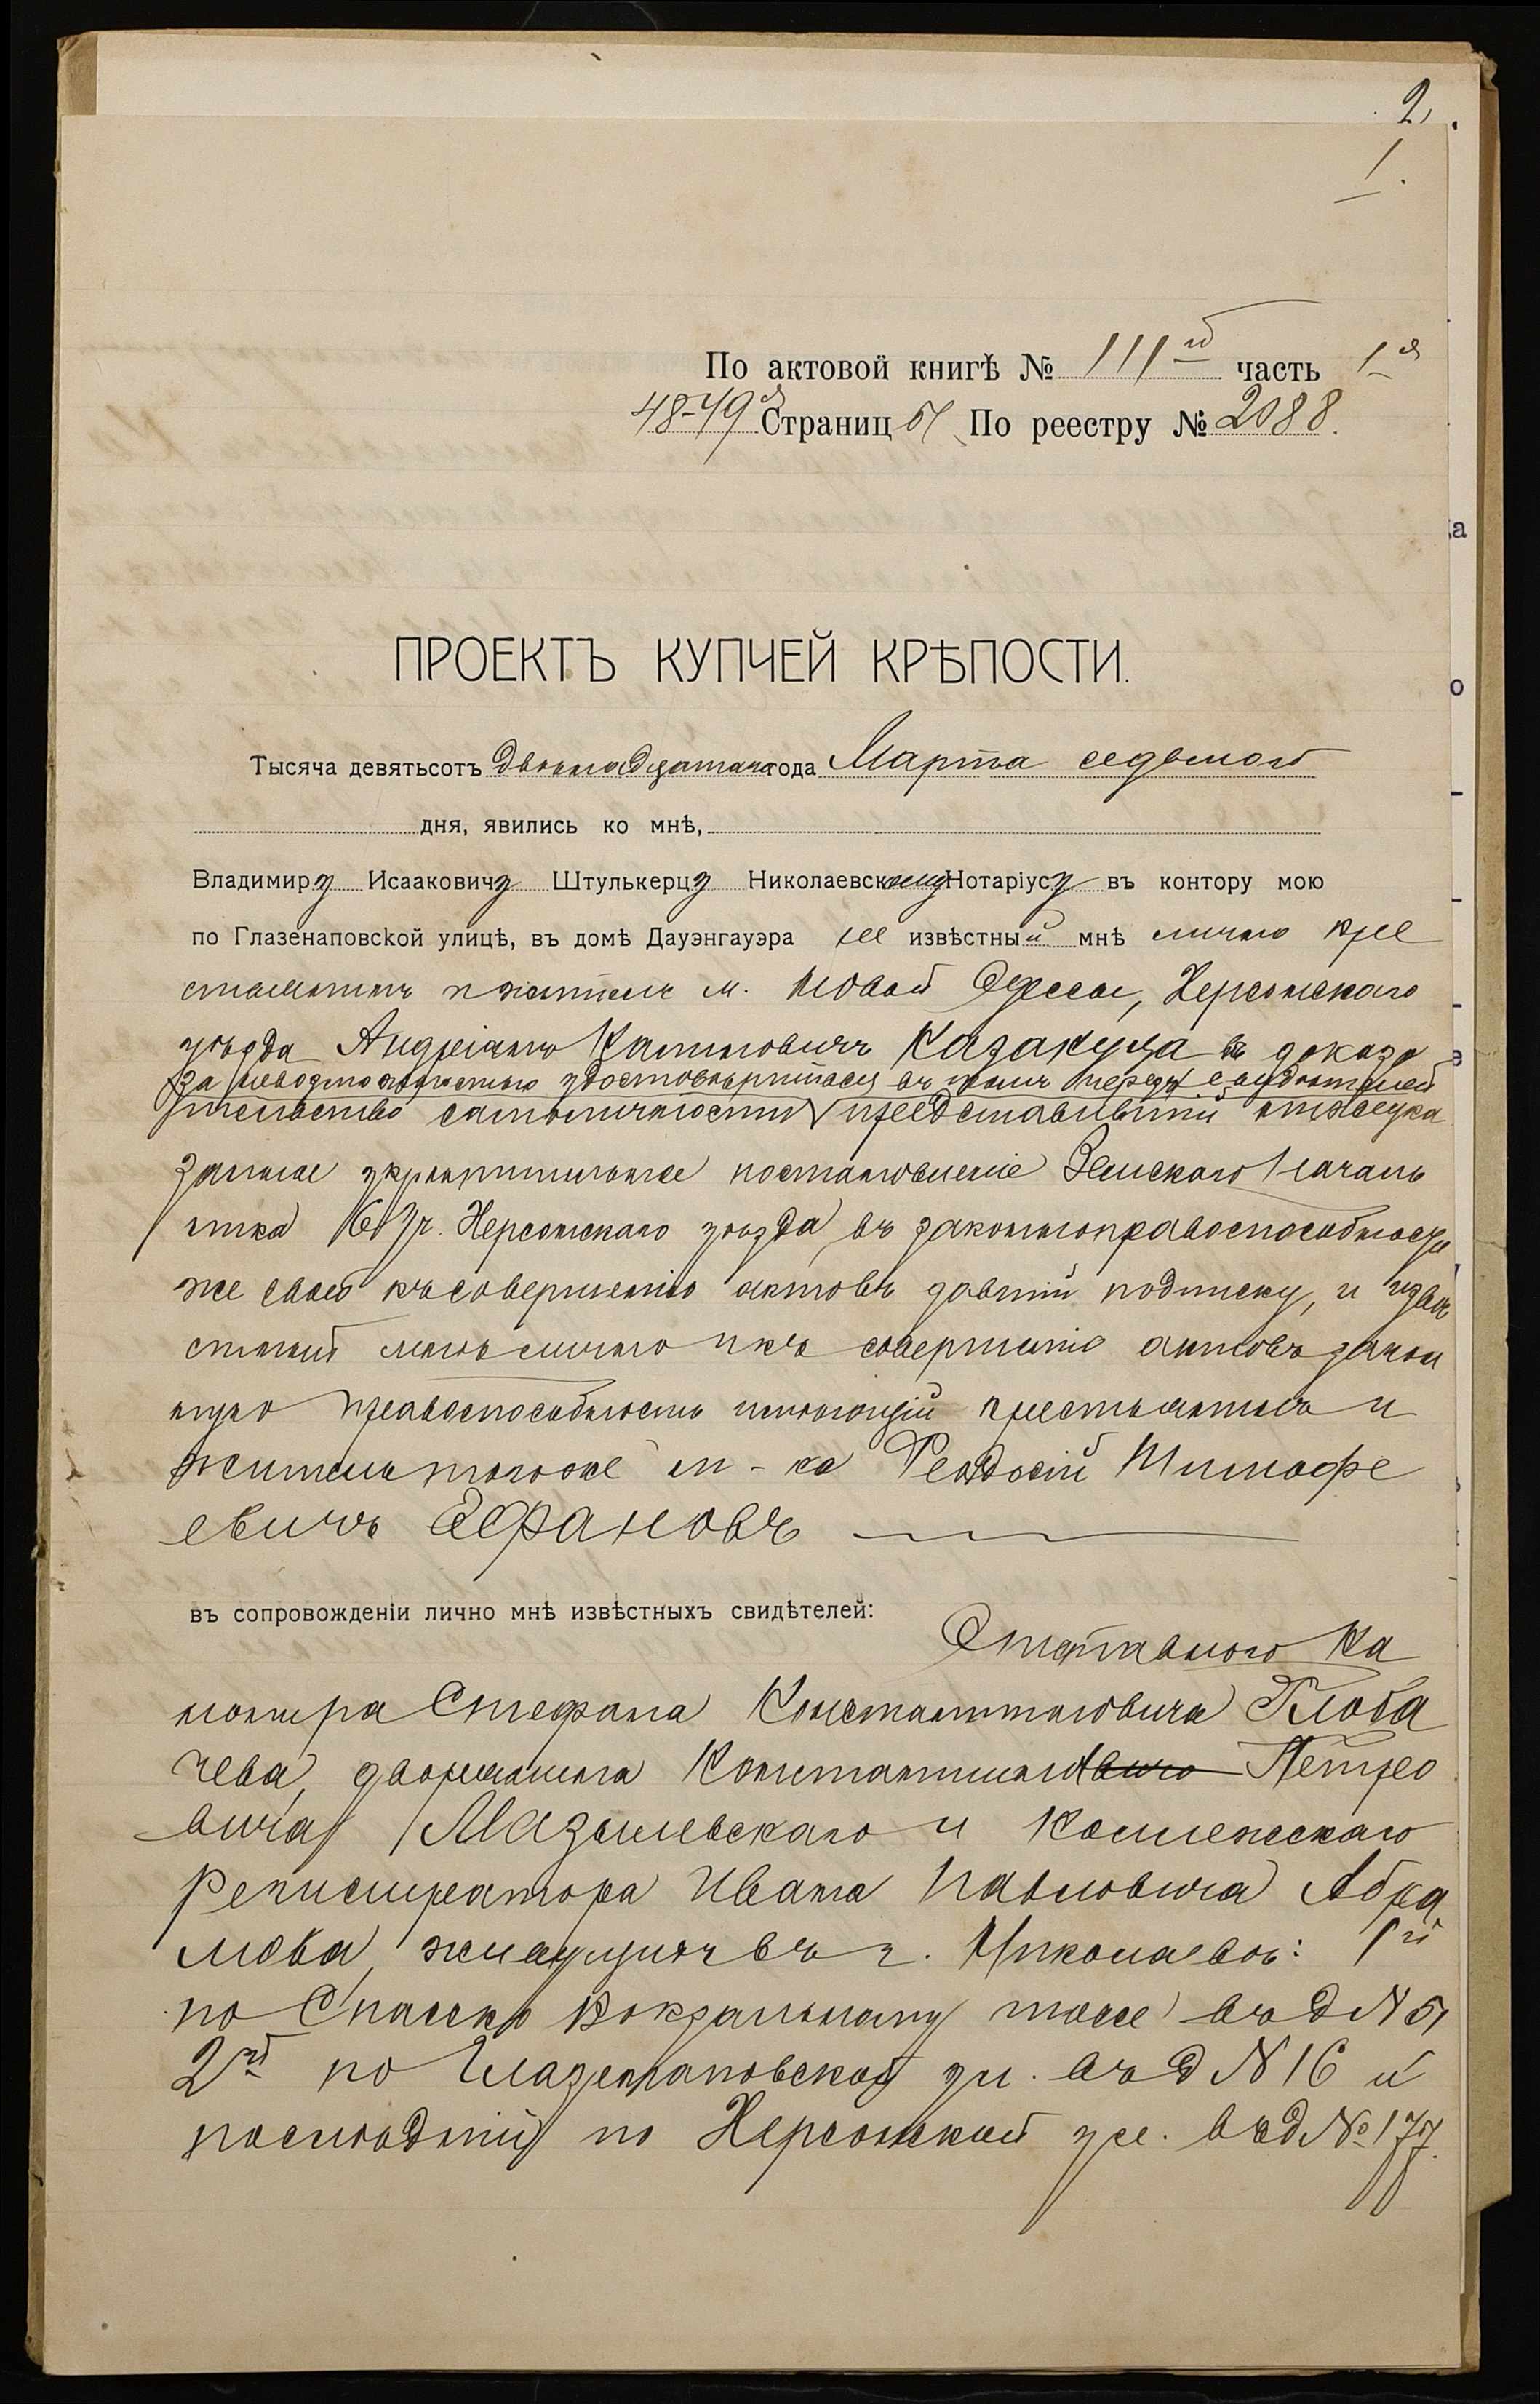 2.
1.
По актовой книгѣ № 111й часть 1я
48-49 Страниц 51 По реестру № 2088.
ПРОЕКТЪ КУПЧЕЙ КРѢПОСТИ.
Тысяча девятьсотъ двѣнадцатаго года Марта седьмого
дня, явились ко мнѣ,
Владимиру Исааковичу Штулькерцу Николаевскому Нотаріусу въ контору мою
по Глазенаповской улицѣ, въ домѣ Дауэнгауэра не извѣстный мнѣ лично кре
стьянинъ и житель м. Новой Одессы, Херсонскаго
уѣзда Андріанъ Казакуца въ доказа
за невозможностью удостовѣриться въ томъ черезъ свидѣтелей
тельство самоличности представившій нижеука
занное постановленіе Земскаго Началь
ника 6 уч. Херсонскаго уѣзда, въ законноправоспособности
же своей къ совершенію актовъ давшій подписку, и извѣ
стный мнѣ лично и къ совершенію актовъ закон
ную правоспособность имѣющій крестьянинъ и
житель того же м-ка Феодосій Тимофе
евичъ
въ сопровожденіи лично мнѣ извѣстныхъ свидѣтелей:
Отставного Ка
нонира Стефана Константиновича Клоба
чева, дворянина Константина Петро
вича Мазылевскаго и Коллежскаго
Регистратора Ивана Павловича Абра
мова, живущихъ въ г. Николаевѣ: 1й
по Спасско Вокзальному шоссе въ д N 51
2й по Глазенаповской ул. въ д N 16 и
послѣдній по Херсонской ул. въ д № 177.